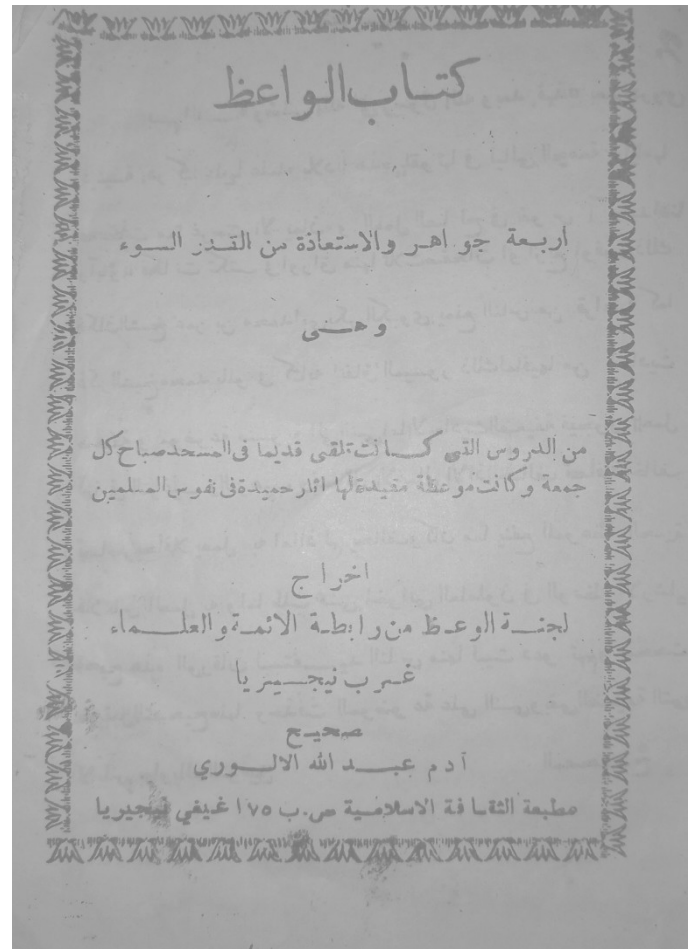 كتاب الواعظ
اربعة جواهر والاستعاذة من القدر السوء
وهــى
من الدروس التى كــانت تلقى قديما فى المسجد صباح كل
جمعة وكانت موعظة مفيدة لها اثار حميدة فى نفوس المسلمين
اخراج
لجنــة الوعــظ من رابطــة الائمــة والعلــماء
غــرب نيجــيريا
صحيــح
آدم عبــد الله الالــوري
مطبعة الثقافة الاسلامية ص.ب ٧٥ اغيغي نيجيريا